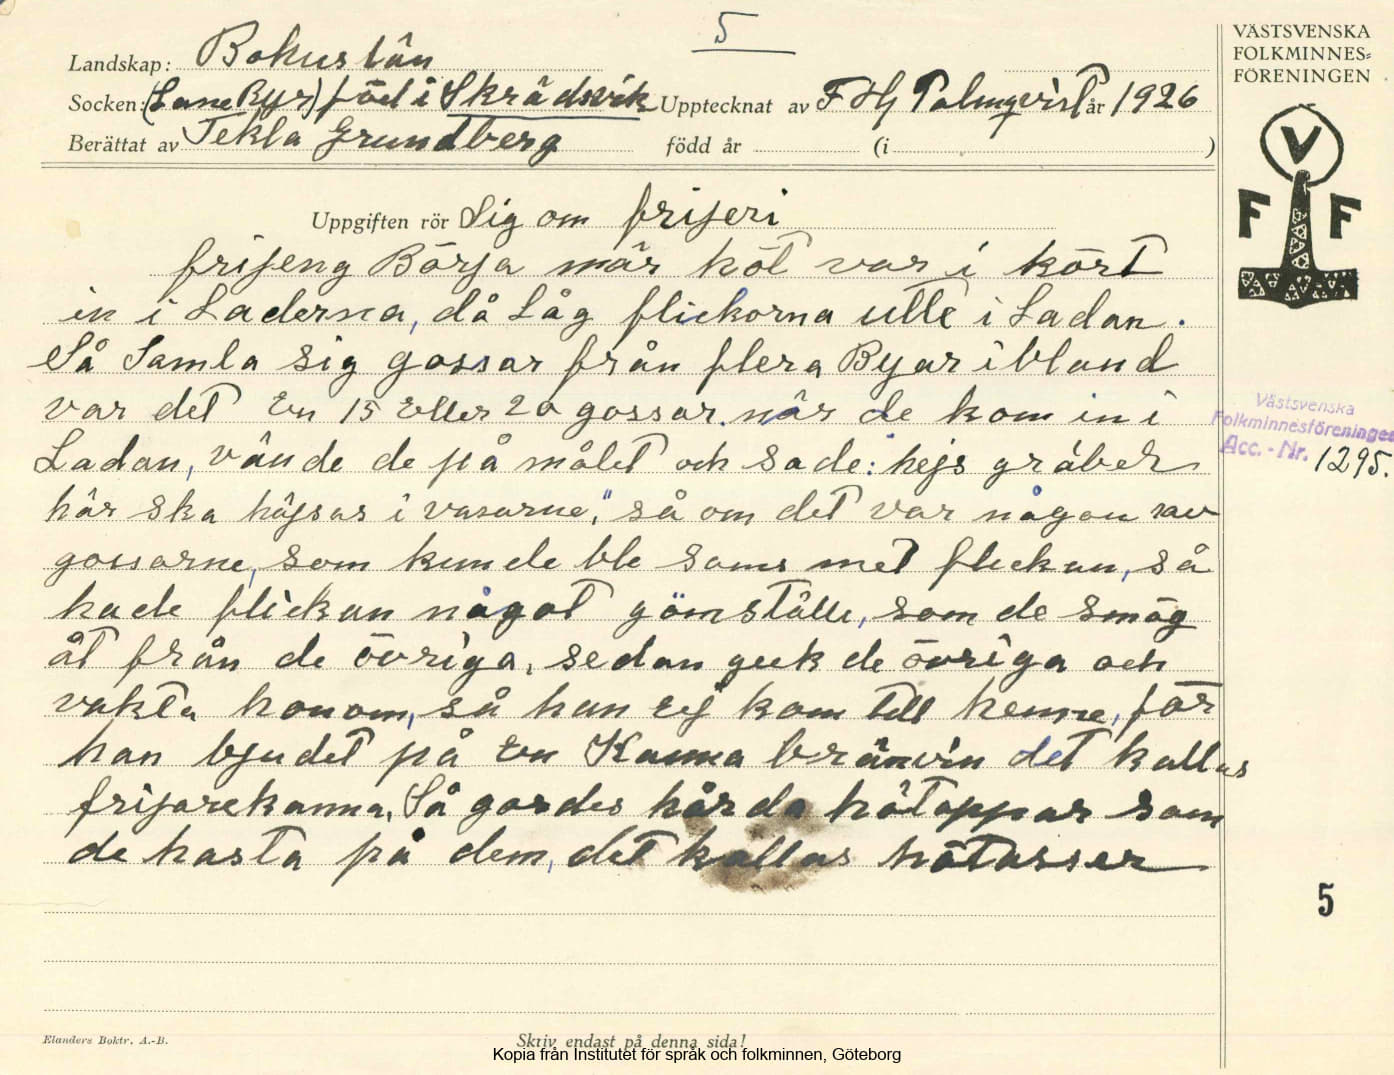 5
VÄSTSVENSKA
FOLKMINNES-
FÖRENINGEN
Landskap: Bohuslän
Socken: (Lane Ryr) född i Skrädsvik Upptecknat av F Hj Palmqvist år 1926
Berättat av Tekla Grundberg född år (i )
V
F F
Uppgiften rör Sig om frijeri
frijeng Börja när höt var i kört
in i Laderna, då Låg flickorna utte i Ladan.
Så Samla sig gossar från flera Byar ibland
var det En 15 Eller 20 gossar. när de kom in i
Ladan, vände de på målet och sade: hejs gråber
här ska häjsas i vasarne," så om det var någon av
gossarne, som kunde ble sams met flickan, så
hade flickan något gömställe, som de smög
åt från de övriga, sedan geck de övriga och
vakta honom, så han Ej kom till henne, för
han bjudet på En Kanna bränvin det kallas
frijarekanna, Så gordes hårda hötappar som
de kasta på dem, det kallas hötasser
Västsvenska
Folkminnesföreningen
Acc.-Nr. 1295.
5
Elanders Boktr. A.-B.
Skriv endast på denna sida!
Kopia från Institutet för språk och folkminnen, Göteborg